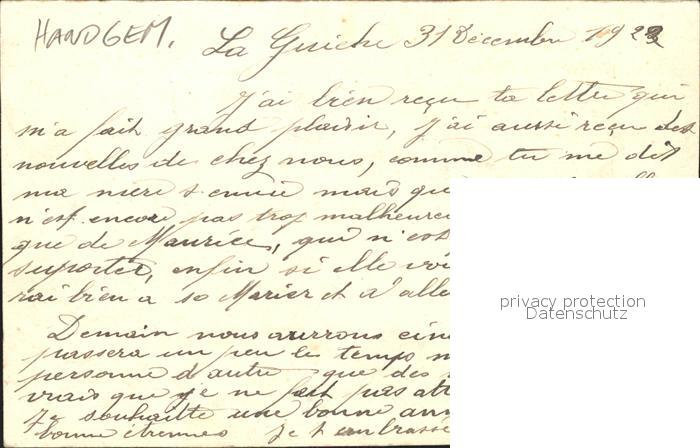 HANDGEM.
La Guiche 31 Décembre 1922
J'ai bien reçu ta lettre qui
m'a fait grand plaisir, J'ai aussi reçu des
nouvelles de chez nous, comme tu me dis
ma mère s'ennuie mais
n'est encore pas trop
que de Maurice, qui n'est
suporter, enfin si elle
rai bien a se Marier et a
Demain nous aurrons
passera un peu le temps
personne d'autre que des
vrais que je ne fait pas
Je souhaitte une bonne
bonne étrennes Je t'embrasse
privacy protection
Datenschutz